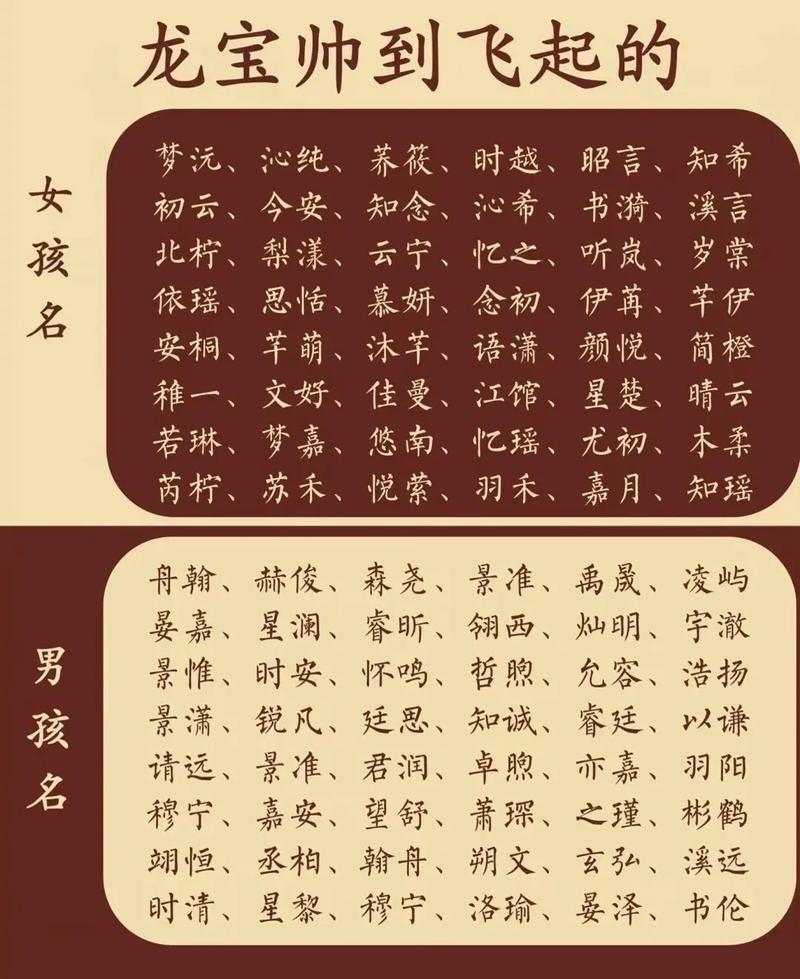 龙宝帅到飞起的
女孩名
梦沅、沁纯、荞筱、时越、昭言、知希
初云、今安、知念、沁希、书漪、溪言
北柠、梨漾、云宁、忆之、听岚、岁棠
依瑶、思恬、慕妍、念初、伊苒、芊伊
安桐、芊萌、沐芊、语潇、颜悦、简橙
稚一、文好、佳曼、江馆、星楚、晴云
若琳、梦嘉、悠南、忆瑶、尤初、木柔
芮柠、苏禾、悦萦、羽禾、嘉月、知瑶
男孩名
舟翰、赫俊、森尧、景准、禹晟、凌屿
晏嘉、星澜、睿昕、翎西、灿明、宇澈
景惟、时安、怀鸣、哲煦、允容、浩扬
景潇、锐凡、廷思、知诚、睿廷、以谦
请远、景准、君润、卓煦、亦嘉、羽阳
穆宁、嘉安、望舒、萧琛、之瑾、彬鹤
翊恒、丞柏、翰舟、朔文、玄弘、溪远
时清、星黎、穆宁、洛瑜、晏泽、书伦